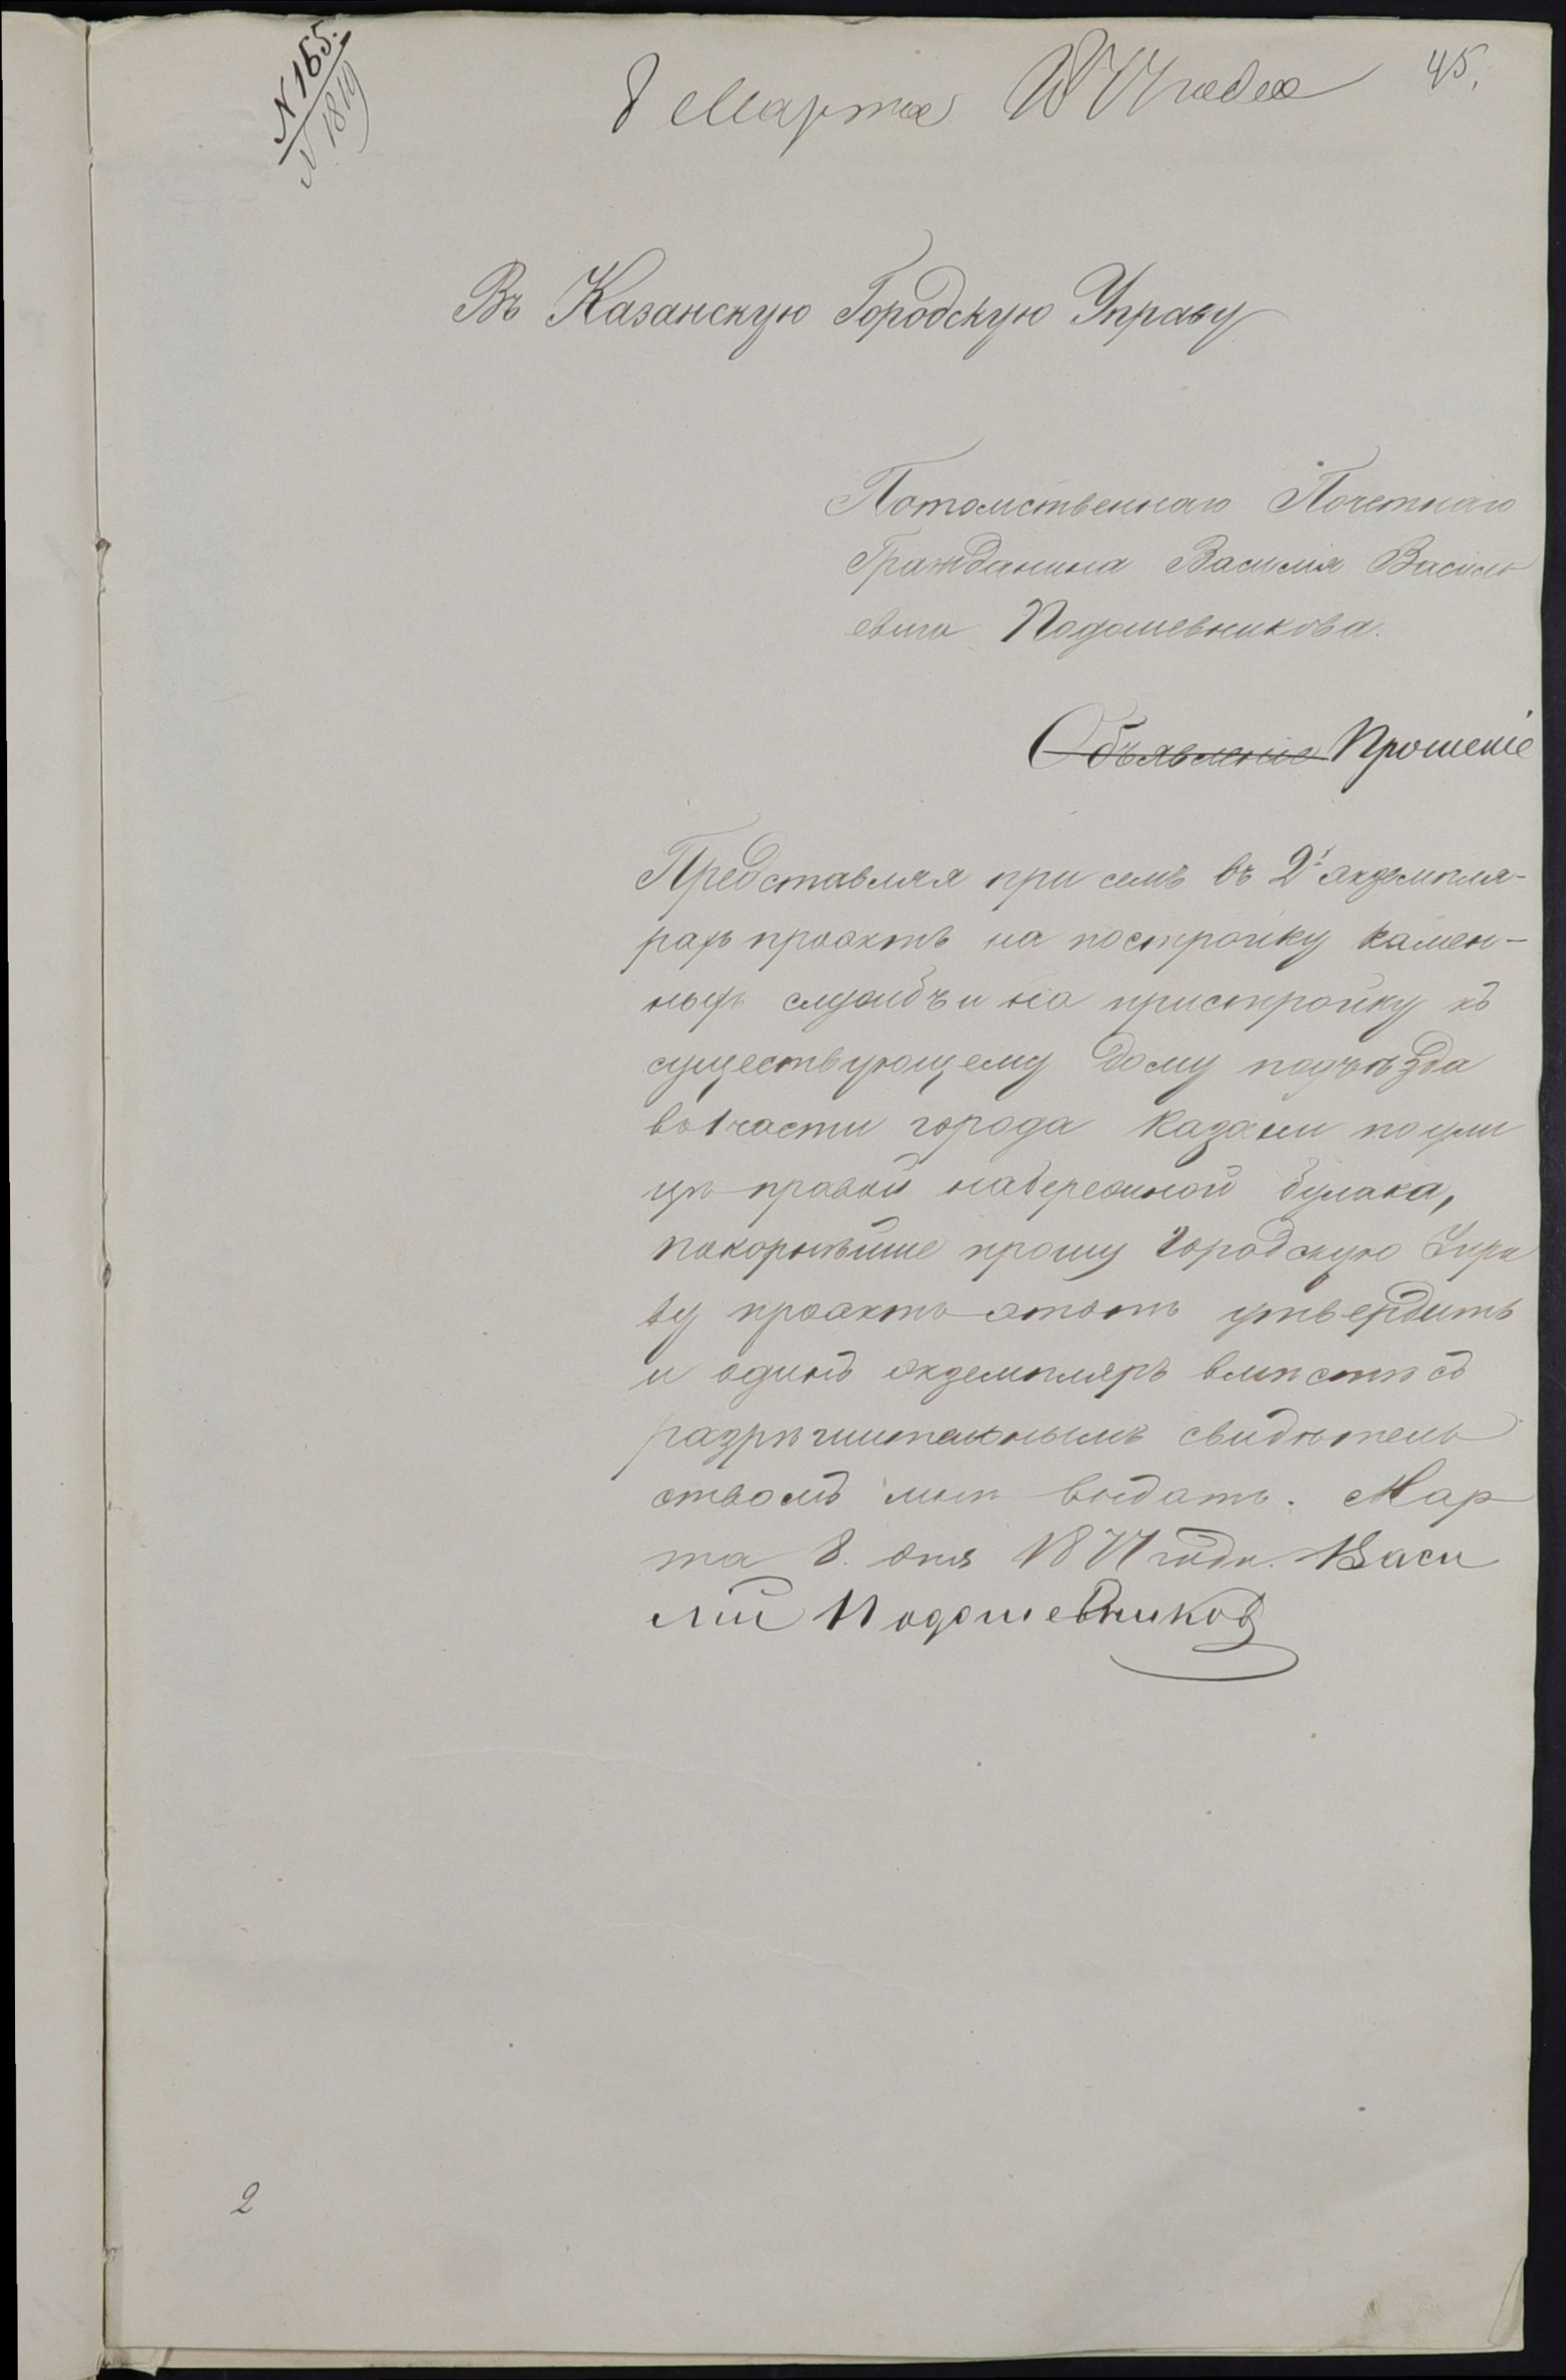 N 165.
N 1819
8 Марта 1877 года
45.
Въ Казанскую Городскую Управу
Потомственнаго Почетнаго
Гражданина Василия Василь
евича Подошевникова.
Объявление Прошеніе
Представляя при семъ въ 2х экземпля-
рахъ проэктъ на постройку камен-
ныхъ службъ и на пристройку къ
существующему дому подъѣзда
во 1 части города Казани по ули
цѣ правой набережной булака,
покорнѣйше прошу Городскую Упра
ву проэктъ этотъ утвердить
и одинъ экземпляръ вмѣстѣ съ
разрѣшительнымъ свидѣтель
ствомъ мнѣ выдать. Мар
та 8. дня 1877 года. Васи
лій Подошевников
2